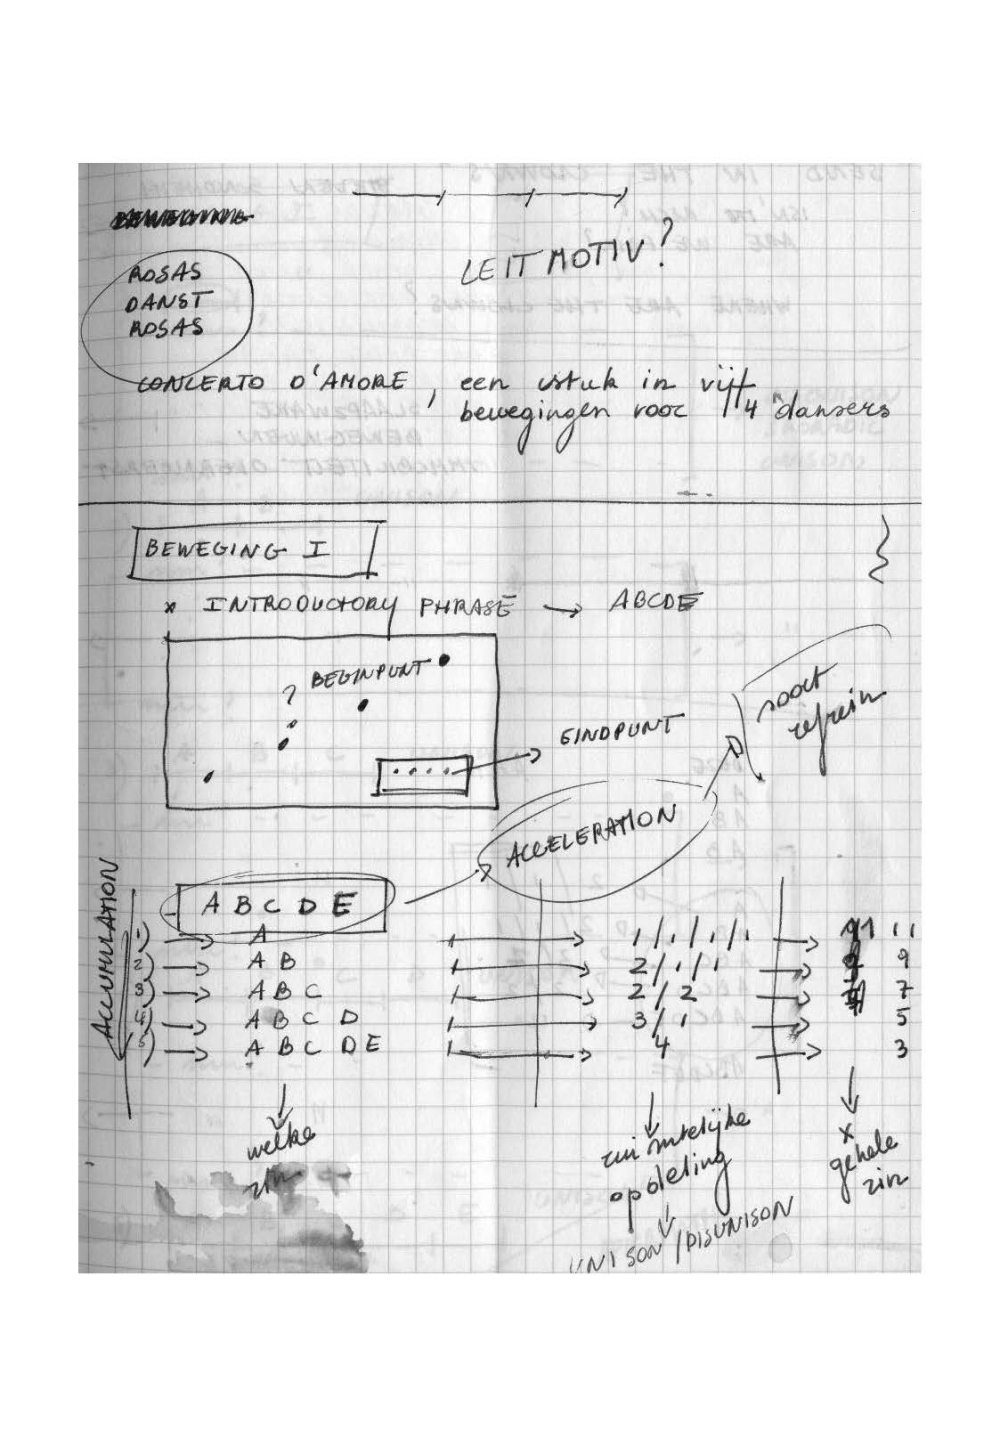 LEITMOTIV?
ROSAS
DANST
ROSAS
CONCERTO D'AMORE, een stuk in vijf
bewegingen voor 4 dansers
BEWEGING I
x INTRODUCTORY PHRASE → ABCDE
BEGINPUNT
?
EINDPUNT
soort
refrein
ACCELERATION
ACCUMULATION
A B C D E
1) → A → 1/1/1/1 → 11
2) → A B → 2/1/1 → 9
3) → A B C → 2/2 → 7
4) → A B C D → 3/1 → 5
5) → A B C D E → 4 → 3
welke
zin
ruimtelijke
opdeling
UNISON/DISUNISON
x
gehele
zin